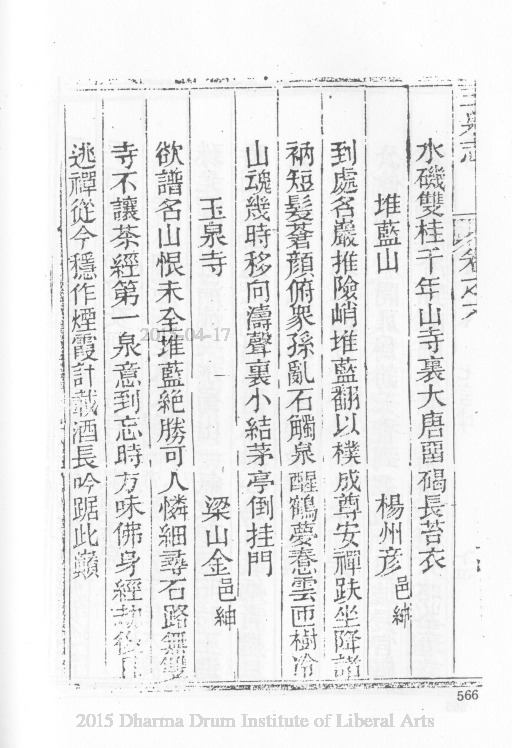 玉泉志 卷之六
水磯雙桂千年山寺裏大唐畱碣長苔衣
堆藍山 楊州彦邑紳
到處名巖推險峭堆藍翻以樸成尊安禪趺坐降諸
衲短髮蒼顔俯衆孫亂石觸泉醒鶴夢惫雲匝樹冷
山魂幾時移向濤聲裏小結茅亭倒挂門
玉泉寺 梁山金邑紳
欲譜名山恨未全堆藍絶勝可人憐細尋石路無雙
寺不讓茶經第一泉意到忘時方味佛身經劫後
逃禪從今穩作煙霞計載酒長吟踞此巔
2015-04-17
566
2015 Dharma Drum Institute of Liberal Arts